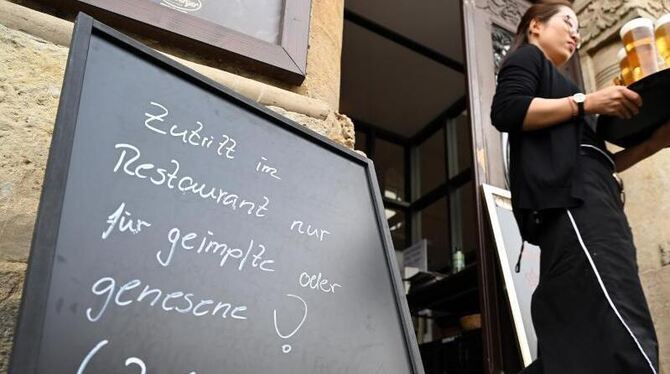 Zutritt im
Restaurant nur
für geimpfte oder
genesene !